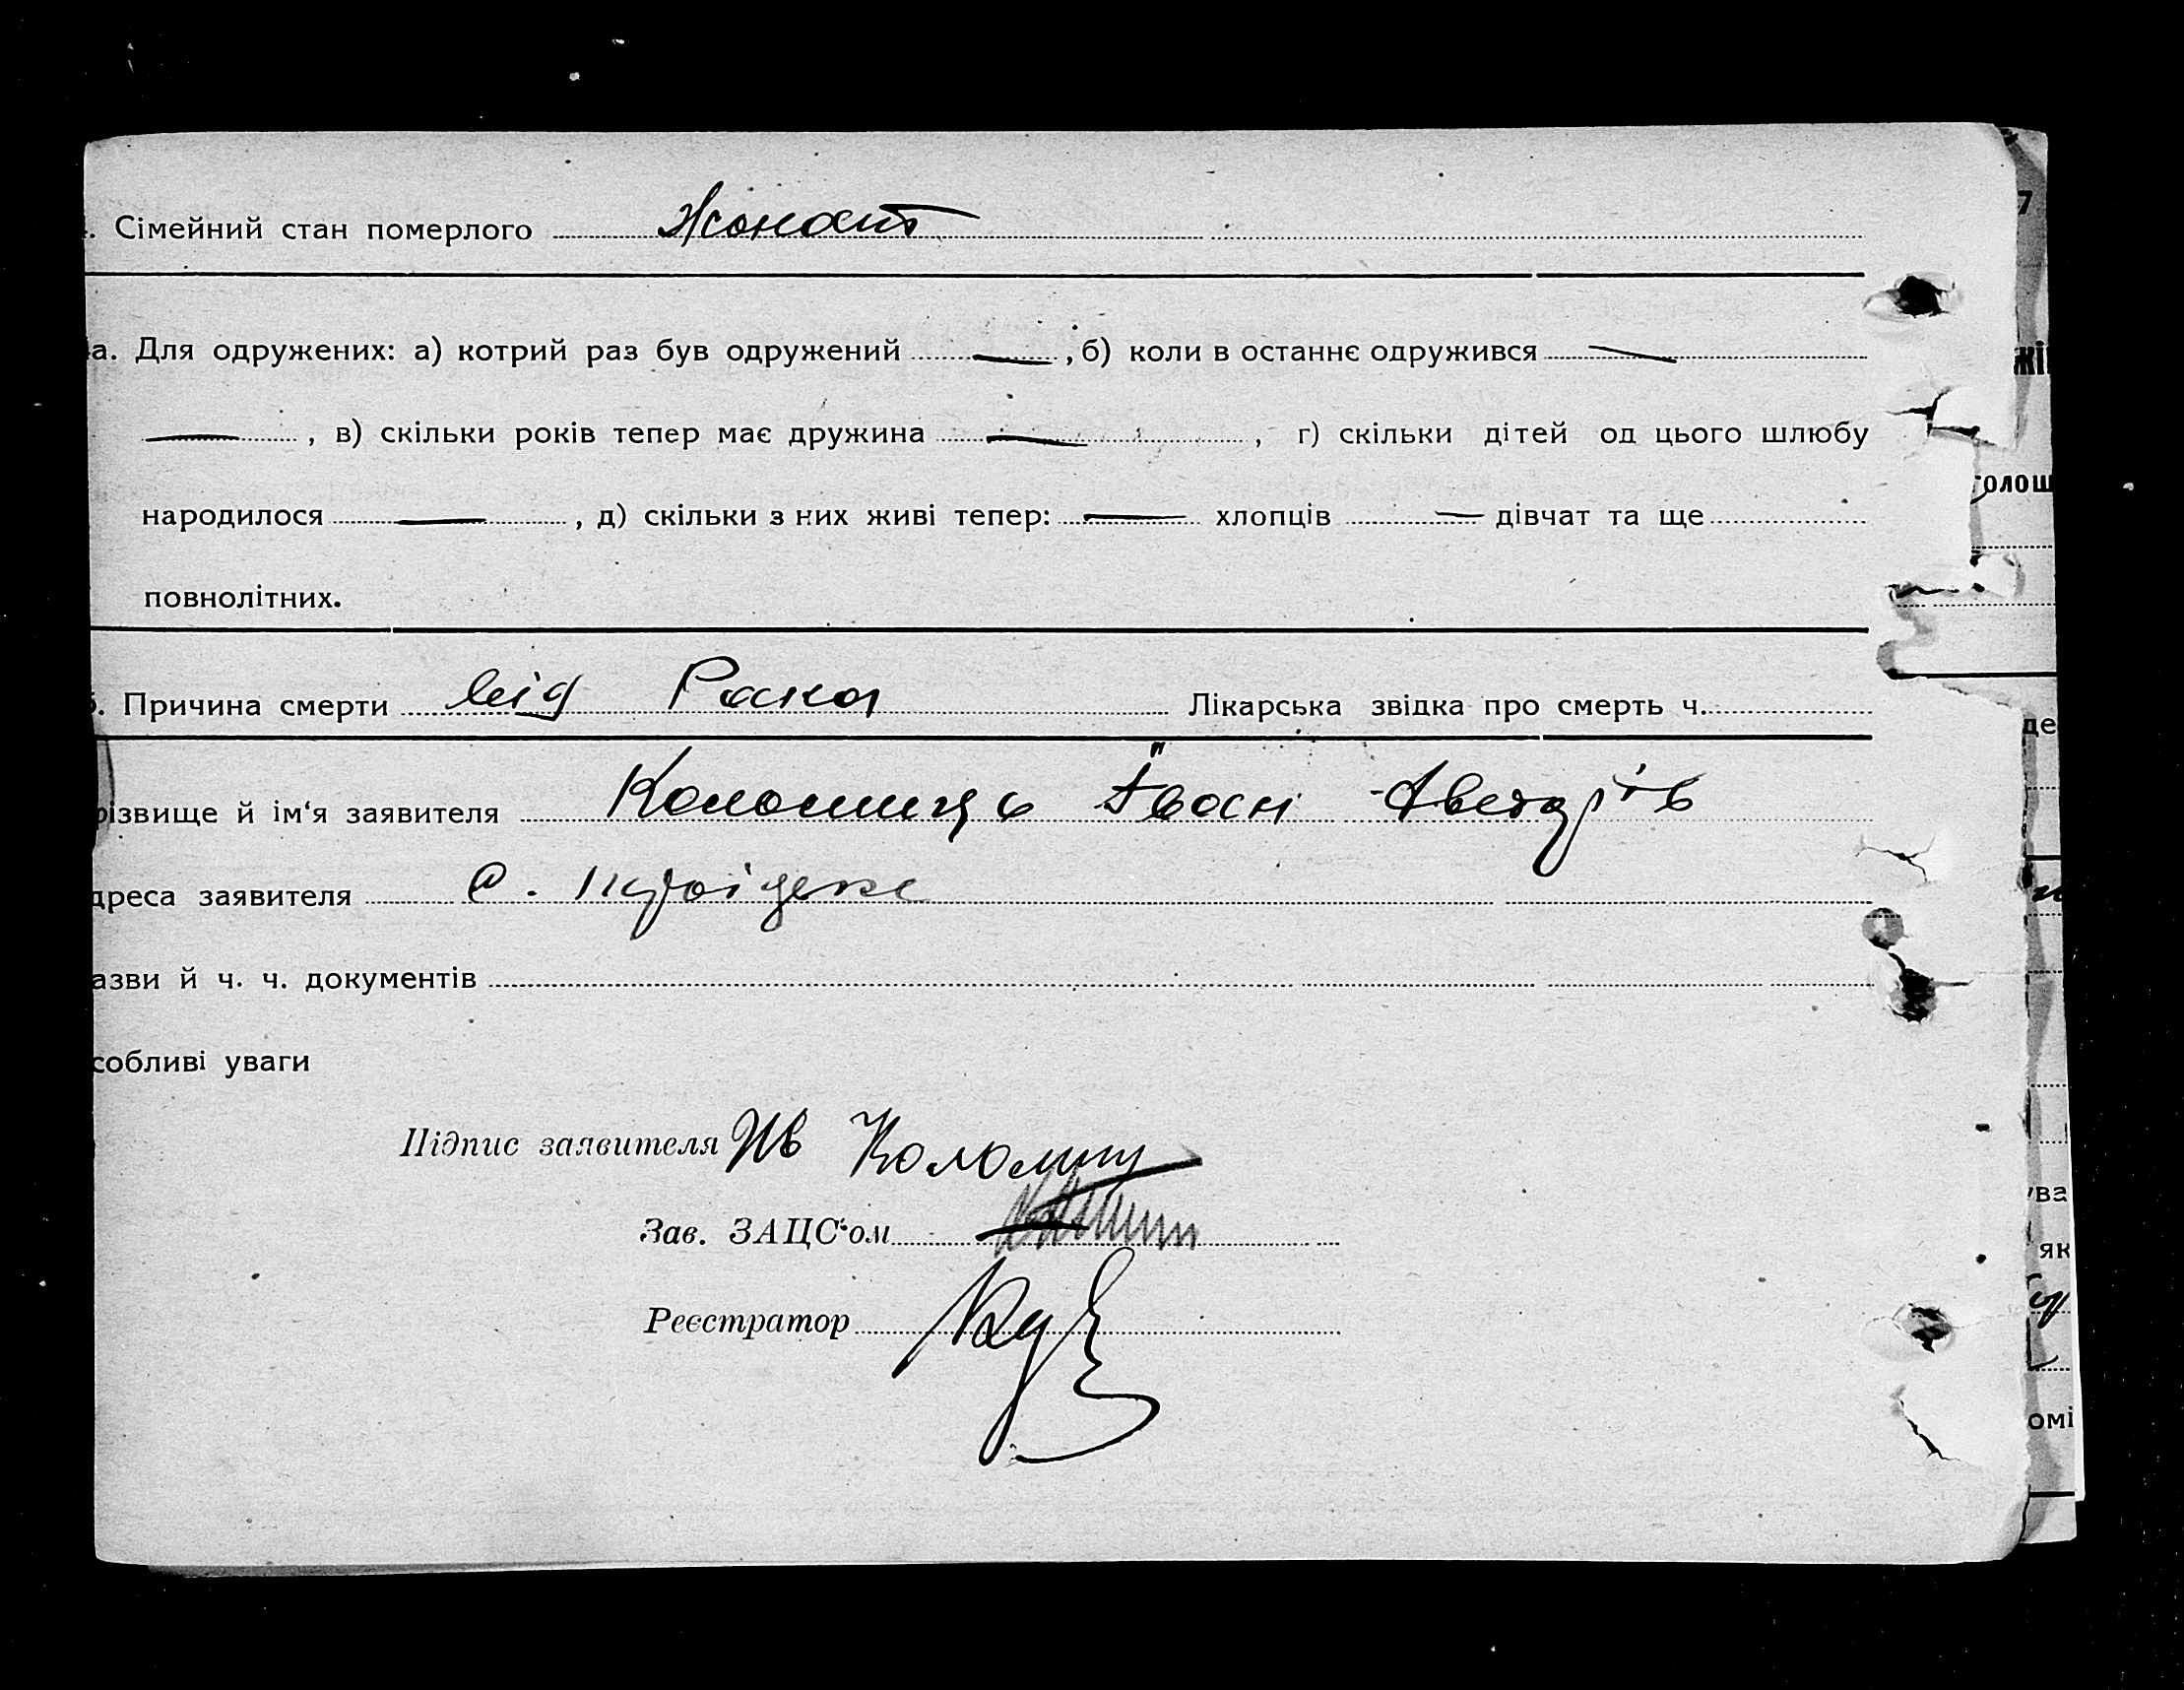 . Сімейний стан померлого Жонат
а. Для одружених: а) котрий раз був одружений —, б) коли в останнє одружився —
—, в) скільки років тепер має дружина —, г) скільки дітей од цього шлюбу
народилося —, д) скільки з них живі тепер: — хлопців — дівчат та ще
повнолітних.
. Причина смерти від Рака Лікарська звідка про смерть ч.
різвище й ім‘я заявителя Коломиць Іван
дреса заявителя с.
азви й ч. ч. документів
собливі уваги
Підпис заявителя Ив Коломиц
Зав. ЗАЦС‘ом
Реєстратор
7
жі
голош
де
ува
як
омі